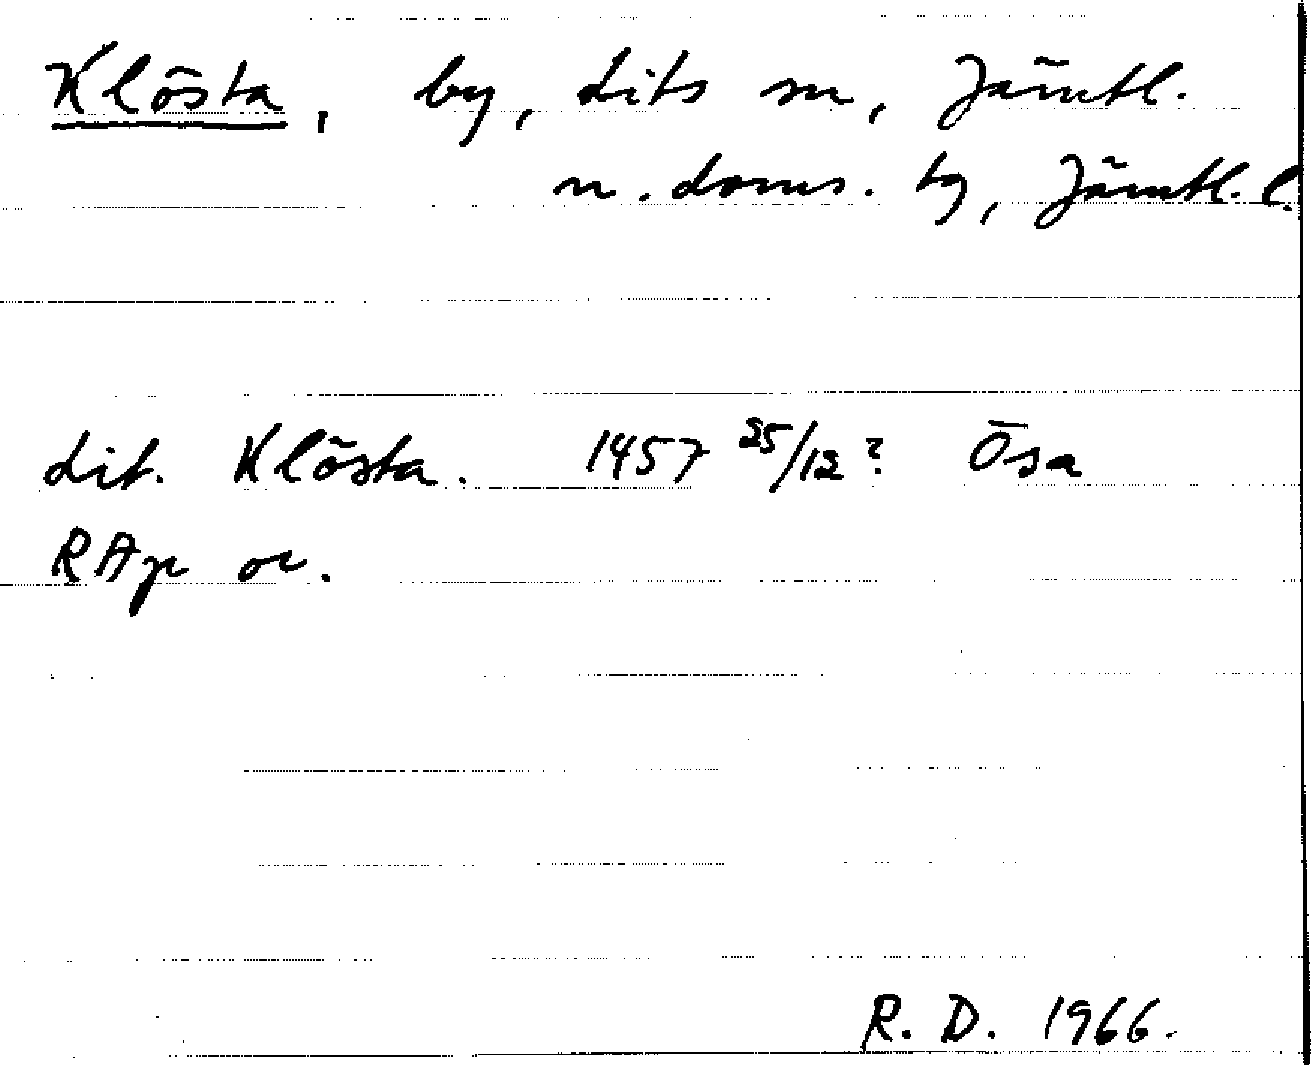 Klösta, by, Lits sn, Jämtl.
n. doms. tg, Jämtl. l.
Lit. Klösta. 1457 25/12? Ösa
RAp or.
R. D. 1966.